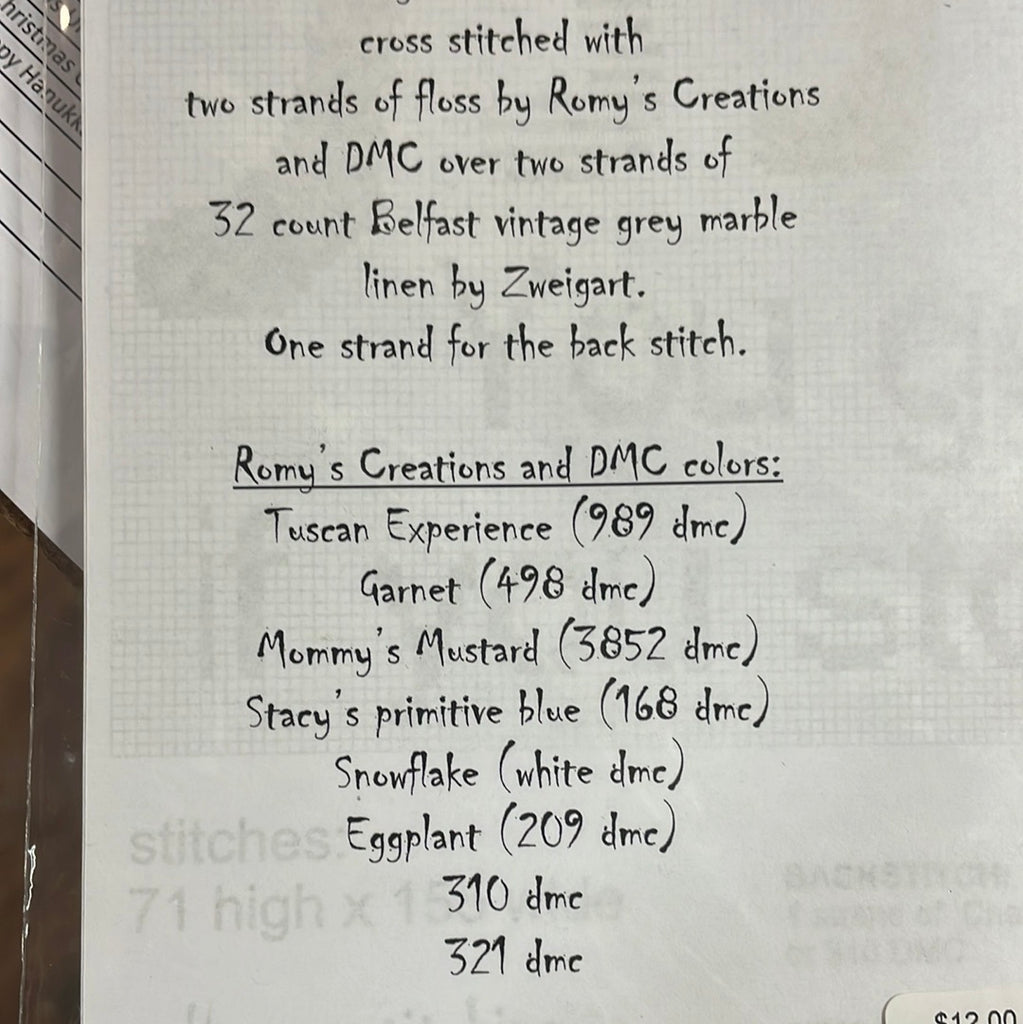 hristmas
py Hanukk
cross stitched with
two strands of floss by Romy's Creations
and DMC over two strands of
32 count Belfast vintage grey marble
linen by Zweigart.
One strand for the back stitch.
Romy's Creations and DMC colors:
Tuscan Experience (989 dmc)
Garnet (498 dmc)
Mommy's Mustard (3852 dmc)
Stacy's primitive blue (168 dmc)
Snowflake (white dmc)
Eggplant (209 dmc)
310 dmc
321 dmc
stitches:
71 high x
$12.00